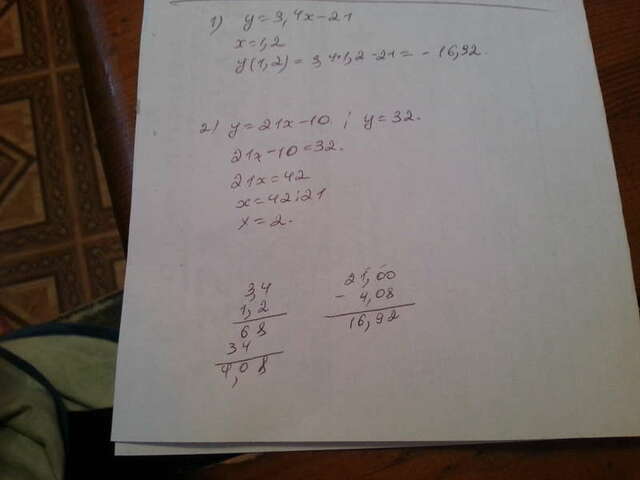 1) y=3,4x-21
x=1,2
y(1,2)=3,4·1,2-21=-16,92.
2) y=21x-10 ; y=32.
21x-10=32.
21x=42
x=42:21
x=2.
3,4
1,2
68
34
4,08
21,00
- 4,08
16,92